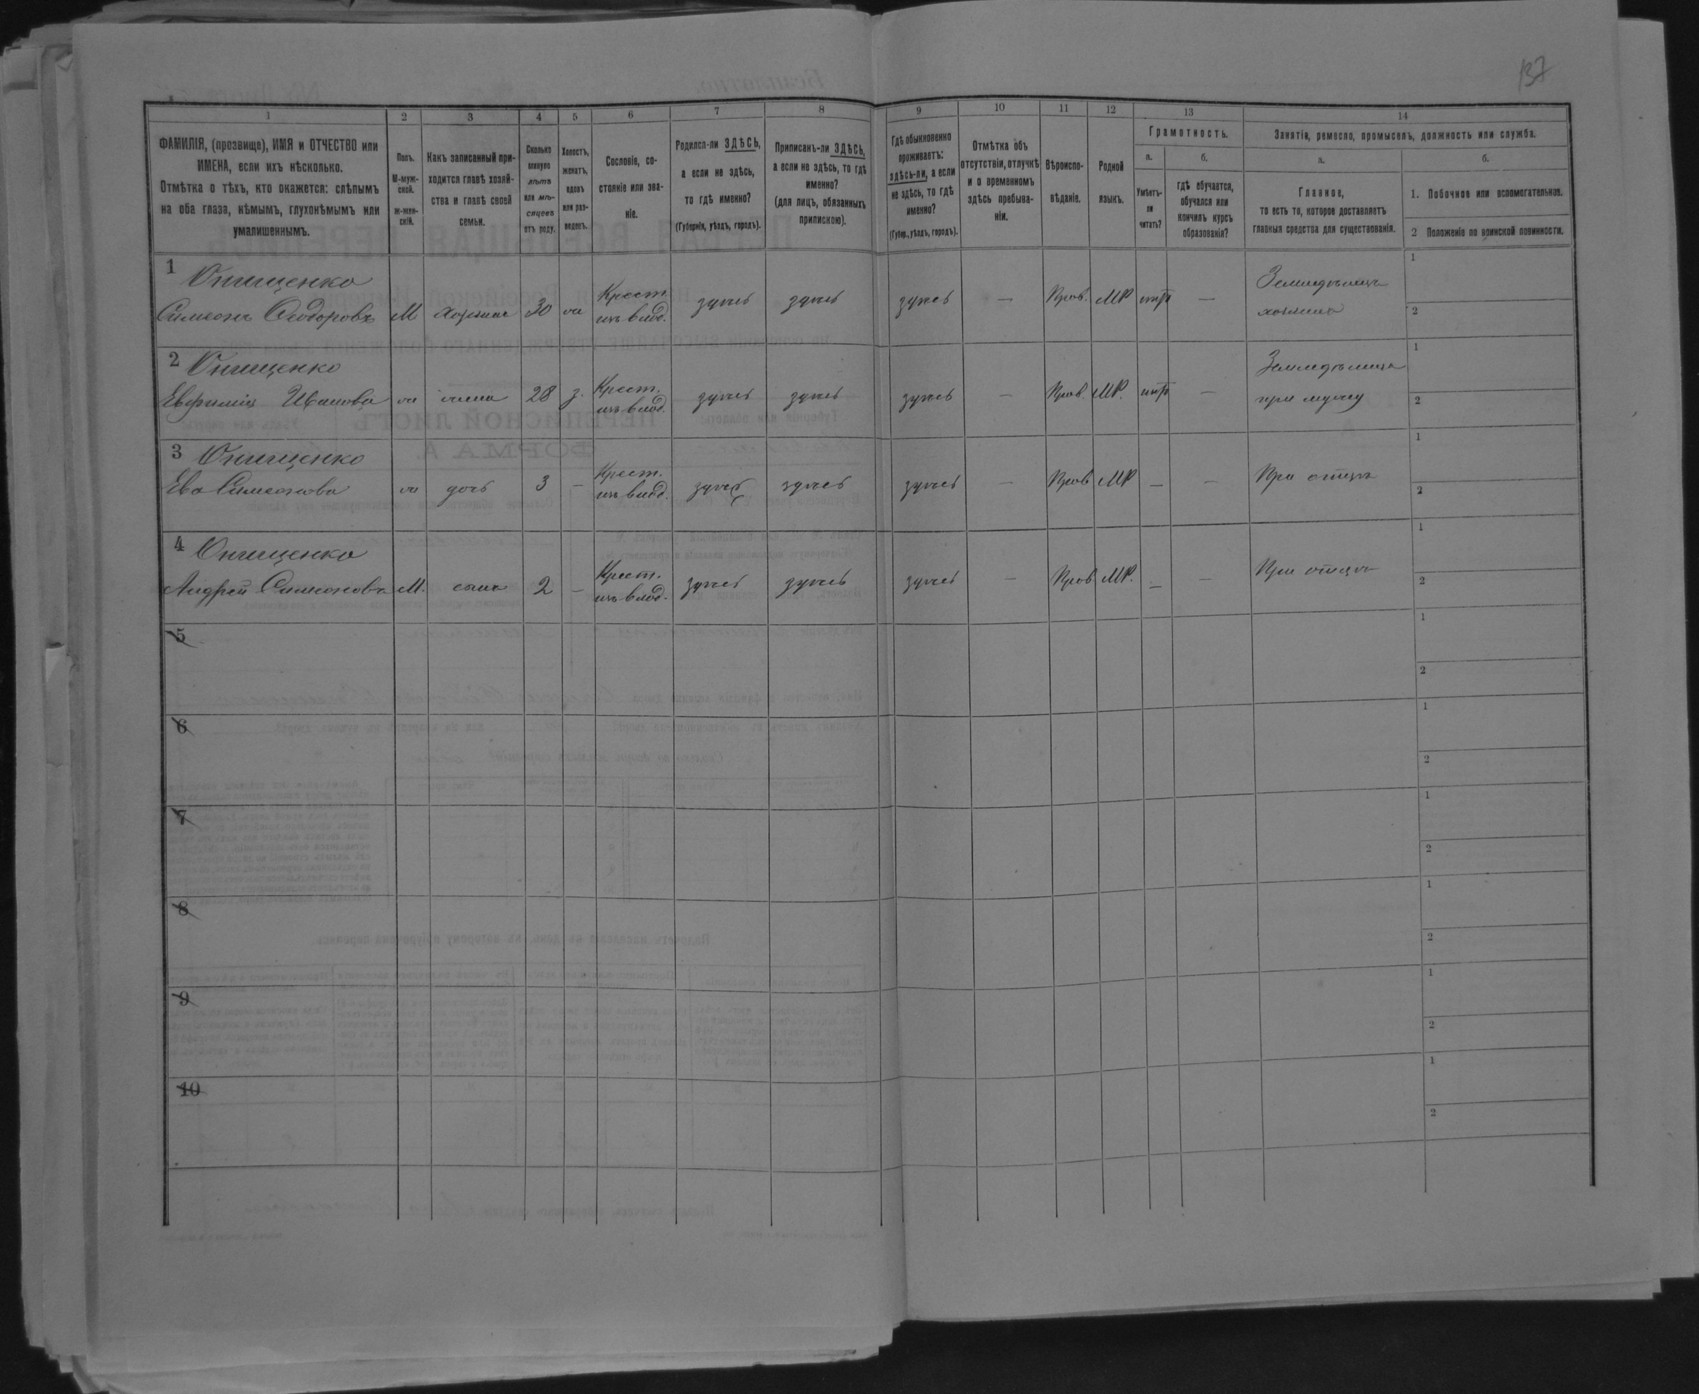 137
1 2 3 4 5 6 7 8 9 10 11 12 13 14
ФАМИЛІЯ, (прозвище), ИМЯ и ОТЧЕСТВО или
ИМЕНА, если ихъ нѣсколько.
Отмѣтка о тѣхъ, кто окажется: слѣпымъ
на оба глаза, нѣмымъ, глухонѣмымъ или
умалишеннымъ.
Полъ.
М-муж-
ской.
ж-жен-
скій.
Какъ записанный при-
ходится главѣ хозяй-
ства и главѣ своей
семьи.
Сколько
минуло
лѣтъ
или мѣ-
сяцевъ
отъ роду.
Холостъ,
женатъ,
вдовъ
или раз-
веденъ.
Сословіе, со-
стояніе или зва-
ніе.
Родился-ли ЗДѢСЬ,
а если не здѣсь,
то гдѣ именно?
(Губернія, уѣздъ, городъ).
Приписанъ-ли ЗДѢСЬ,
а если не здѣсь, то гдѣ
именно?
(для лицъ, обязанныхъ
припискою).
Гдѣ обыкновенно
проживаетъ:
здѣсь-ли, а если
не здѣсь, то гдѣ
именно?
(Губер., уѣздъ, городъ).
Отмѣтка объ
отсутствіи, отлучкѣ
и о временномъ
здѣсь пребыва-
ніи.
Вѣроиспо-
вѣданіе.
Родной
языкъ.
Грамотность.
а. б.
Умѣетъ-
ли
читать?
гдѣ обучается,
обучался или
кончилъ курсъ
образованія?
Занятіе, ремесло, промыселъ, должность или служба.
а. б.
Главное,
то есть то, которое доставляетъ
главныя средства для существованія.
1. Побочное или вспомогательное.
2 Положеніе по воинской повинности.
1 Онищенко
Симеонъ Ѳеодоровъ М хозяинъ 30 ж Крест. изъ влад. здѣсь здѣсь здѣсь — Прав. МР нѣтъ — Земледѣлецъ
хозяинъ
1
2
2 Онищенко
Евфимія Иванова ж жена 28 з. Крест. изъ влад. здѣсь здѣсь здѣсь — Прав МР. нѣтъ — Земледѣлица
при мужу
1
2
3 Онищенко
Ева Симеонова ж дочь 3 — Крест. изъ влад. здѣсь здѣсь здѣсь — Прав МР — — При отцѣ
1
2
4 Онищенко
Андрей Симеоновъ М. сынъ 2 — Крест. изъ влад. здѣсь здѣсь здѣсь — Прав МР. — — При отцѣ
1
2
5
1
2
6
1
2
7
1
2
8
1
2
9
1
2
10
1
2